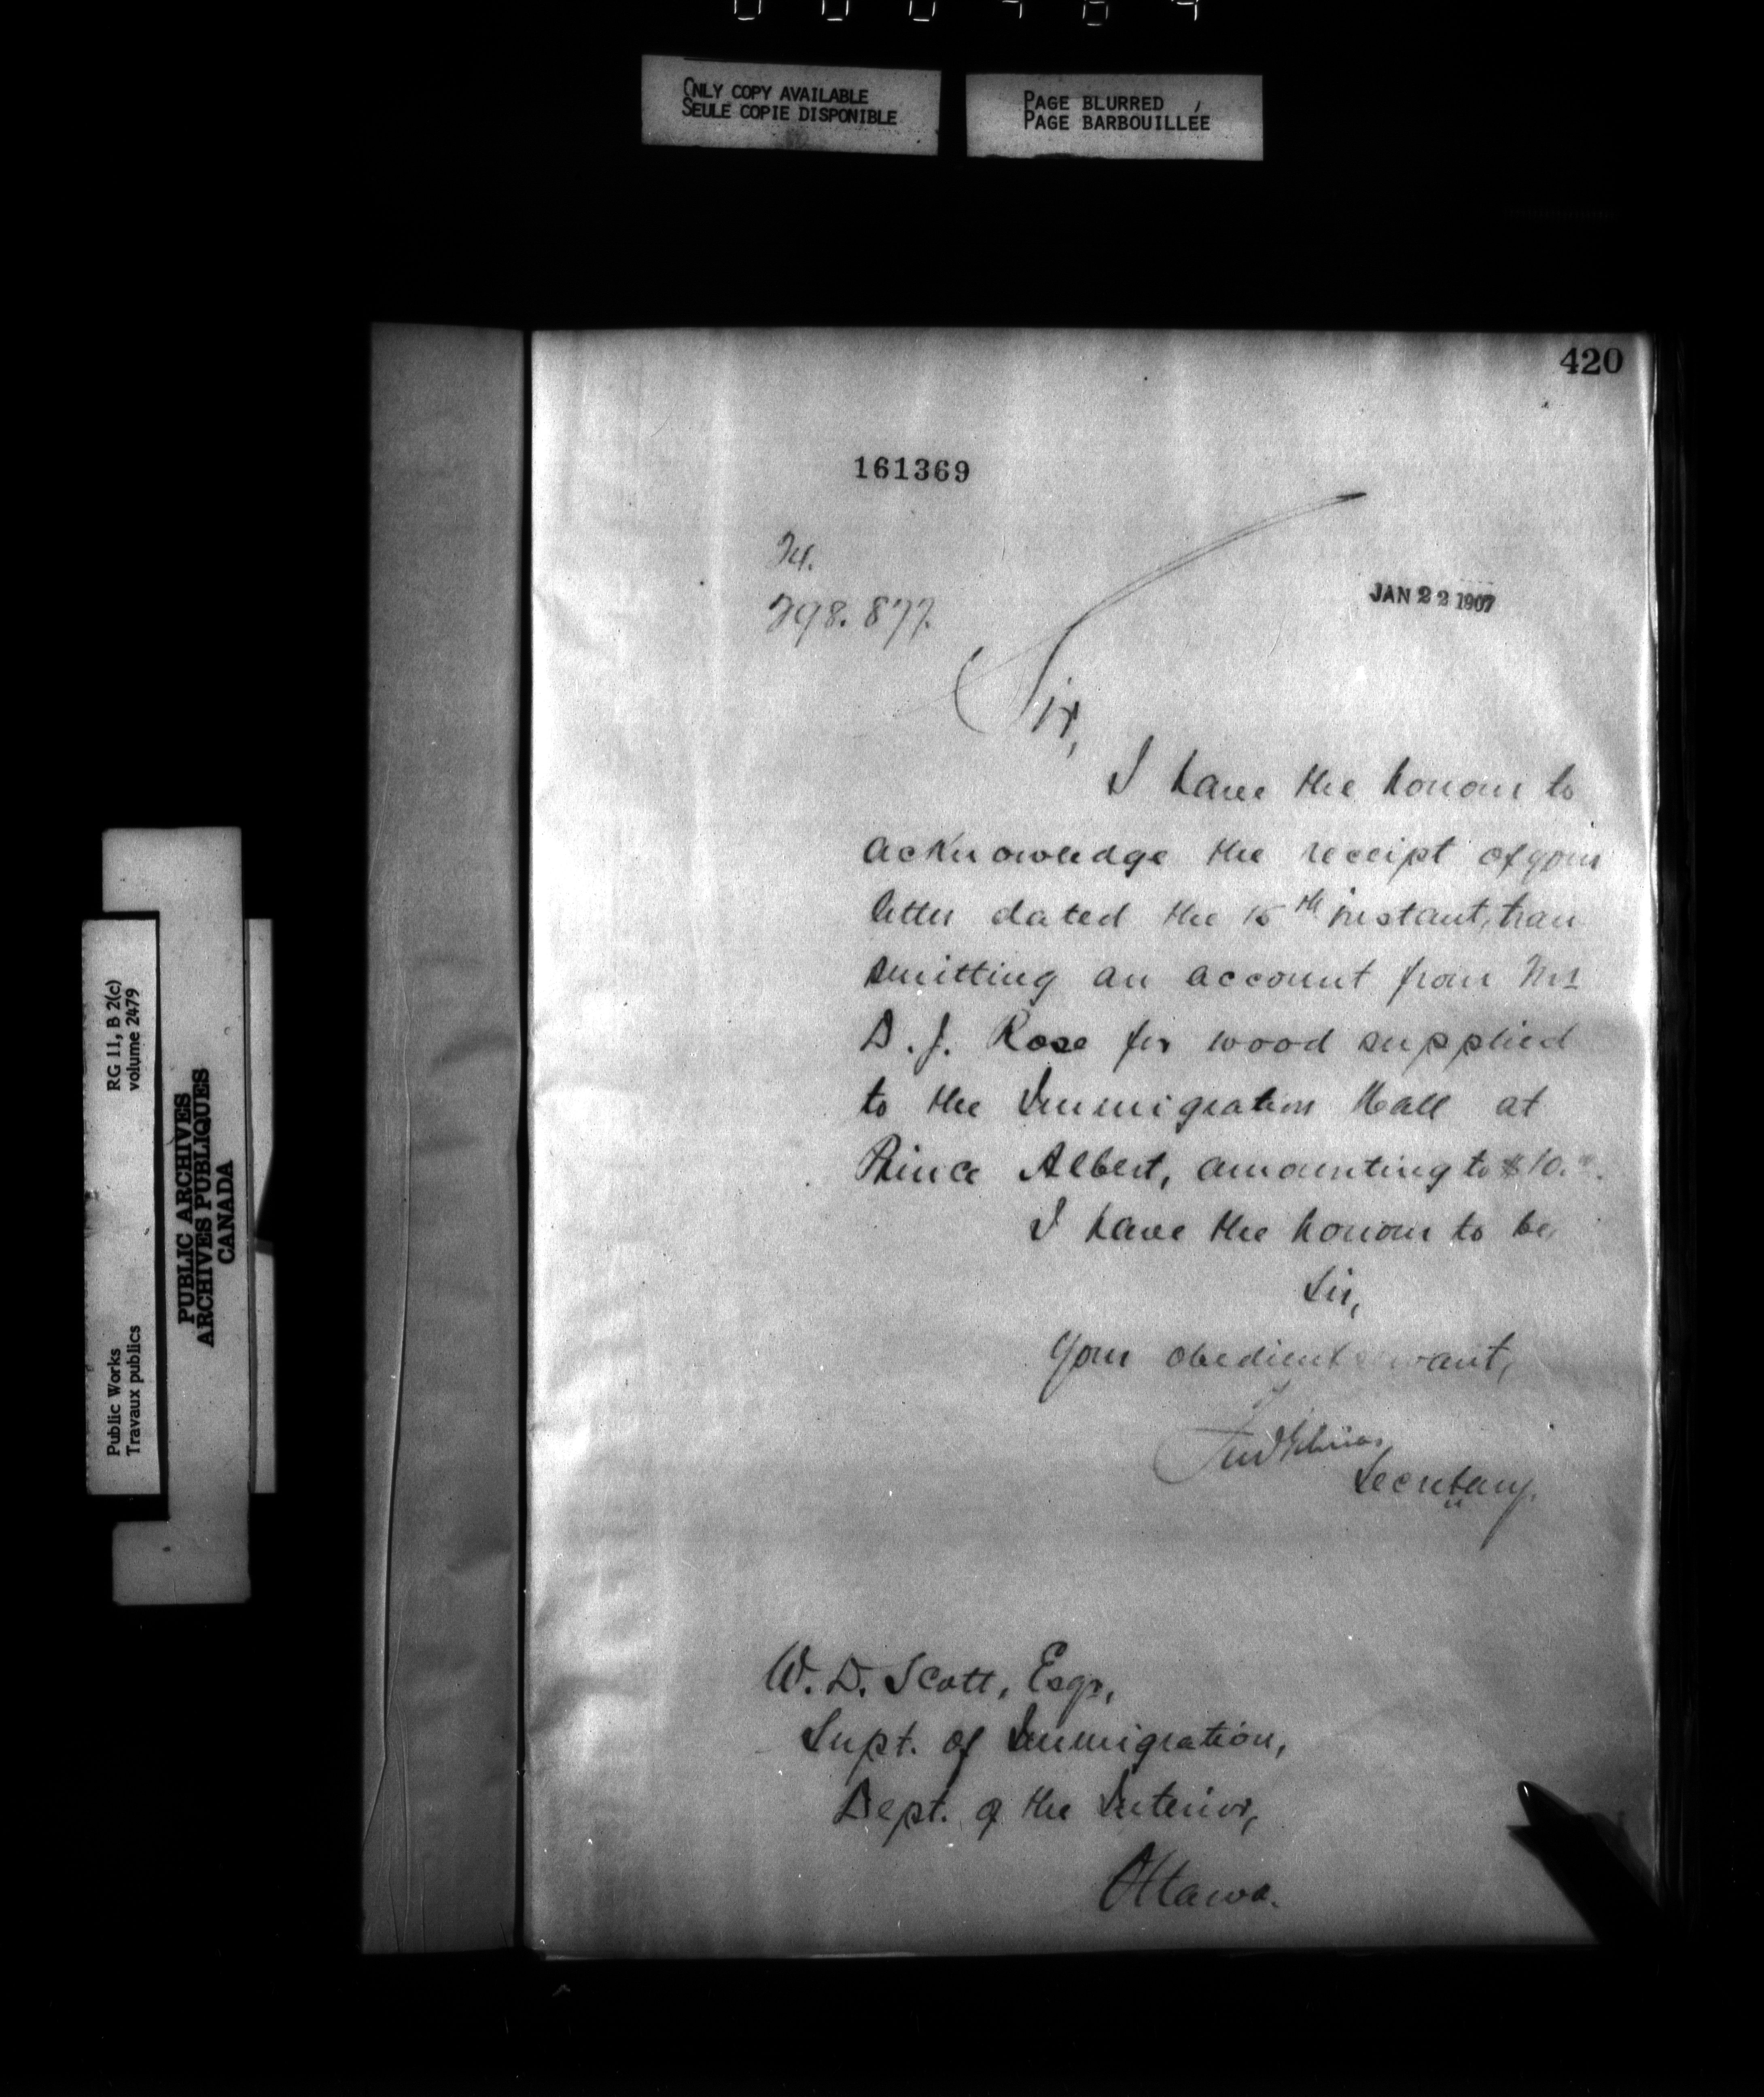 ONLY COPY AVAILABLE
SEULE COPIE DISPONIBLE
PAGE BLURRED
PAGE BARBOUILLÉE
420
161369
298.877.
JAN 22 1907
Sir,
I have the honour to
acknowledge the receipt of your
letter dated the 15th instant, tran
smitting an account from Mr
D. J. Rose for wood supplied
to the Immigration Hall at
Prince Albert, amounting to $10.
I have the honour to be,
Sir,
Your obedient servant,
Secretary.
W. D. Scott, Esqr,
Supt. of Immigration,
Dept. of the Interior,
Ottawa.
RG 11, B 2(c)
volume 2479
Public Works
Travaux publics
PUBLIC ARCHIVES
ARCHIVES PUBLIQUES
CANADA